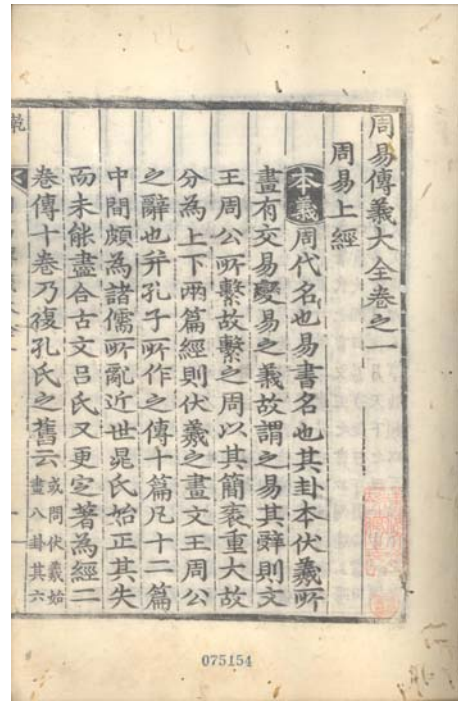 周易傳義大全卷之一
周易上經
本義周代名也易書名也其卦本伏羲所
畫有交易變易之義故謂之易其辭則文
王周公所繫故繫之周以其簡袠重大故
分為上下兩篇經則伏羲之畫文王周公
之辭也幷孔子所作之傳十篇凡十二篇
中間頗為諸儒所亂近世晁氏始正其失
而未能盡合古文呂氏又更定著為經二
卷傳十卷乃復孔氏之舊云
或問伏羲始
畫八卦其六
乾
075154